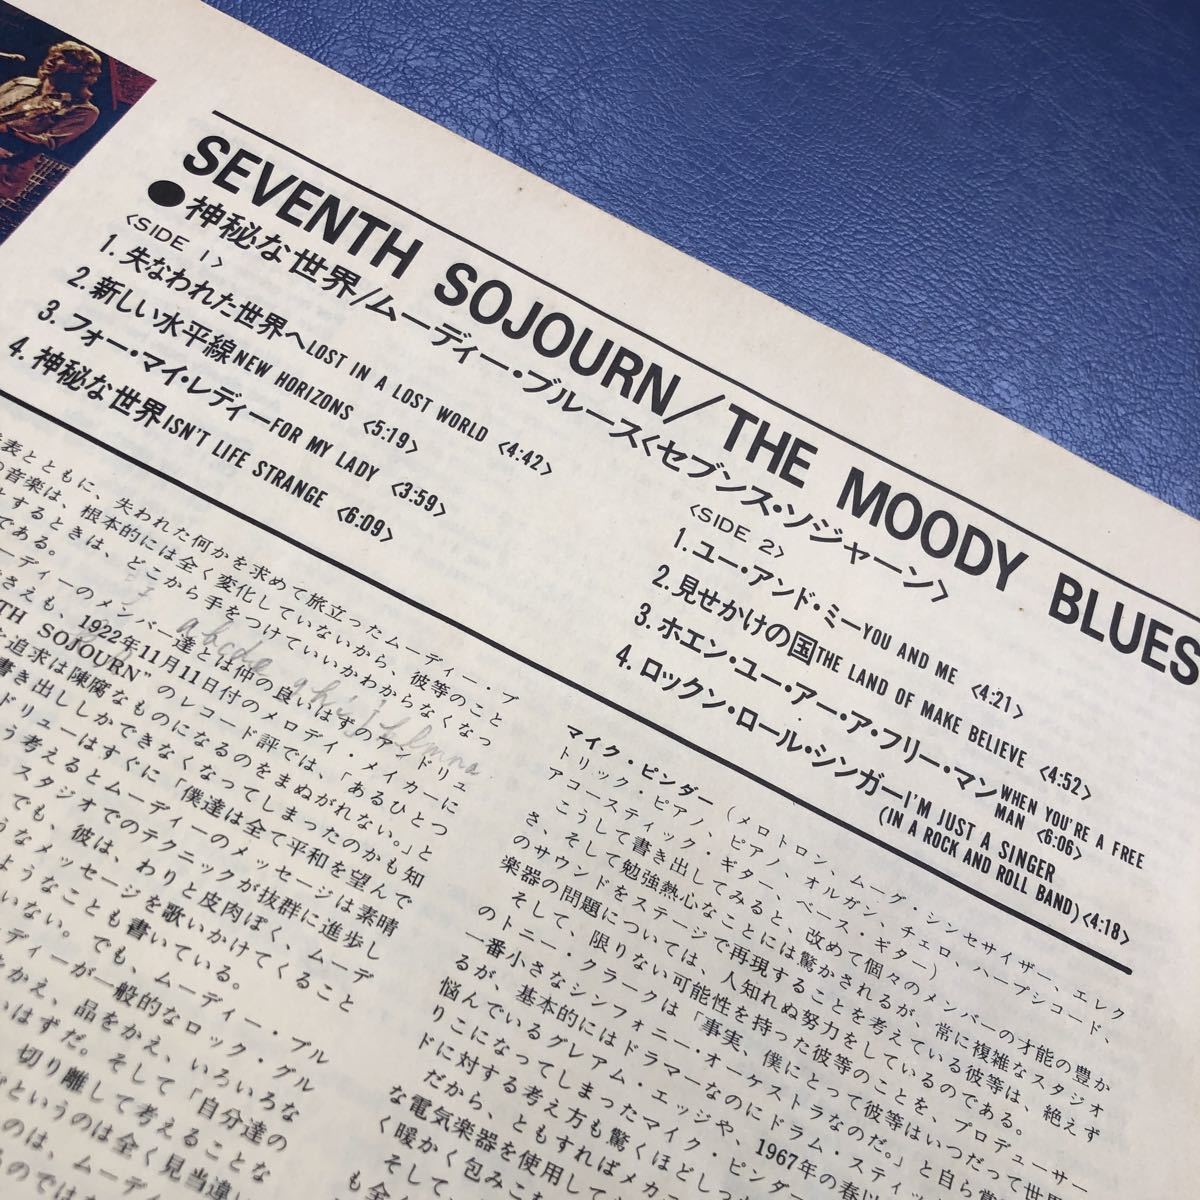 SEVENTH SOJOURN/THE MOODY BLUES
●神秘な世界/ムーディー・ブルース<セブンス・ソジャーン>
<SIDE 1>
1. 失なわれた世界へ LOST IN A LOST WORLD <4:42>
2. 新しい水平線 NEW HORIZONS <5:19>
3. フォー・マイ・レディー FOR MY LADY <3:59>
4. 神秘な世界 ISN'T LIFE STRANGE <6:09>
<SIDE 2>
1. ユー・アンド・ミー YOU AND ME <4:21>
2. 見せかけの国 THE LAND OF MAKE BELIEVE <4:52>
3. ホエン・ユー・アー・ア・フリー・マン WHEN YOU'RE A FREE MAN <6:06>
4. ロックン・ロール・シンガー I'M JUST A SINGER (IN A ROCK AND ROLL BAND) <4:18>
表とともに、失われた何かを求めて旅立ったムーディー・ブ
音楽は、根本的には全く変化していないから、彼等のこと
とするときは、どこから手をつけていいかわからなくなっ
である。
ーディーのメンバー達とは仲の良いはずのアンドリュ
さえも、1922年11月11日付のメロディ・メイカーに
TH SOJOURN"のレコード評では、「あるひとつ
追求は陳腐なものになるのをまぬがれない。」と
書き出ししかできなくなってしまったのかも知
ドリューはすぐに「僕達は全て平和を望んで
う考えるとムーディーのメッセージは素晴
スタジオでのテクニックが抜群に進歩し
でも、彼は、わりと皮肉ぽく、ムーデ
うなメッセージを歌いかけてくること
ようなことも書いている。
いない。でも、ムーディー・ブル
ディーが一般的なロック・グル
かえ、品をかえ、いろいろな
いはずだ。そして「自分達の
切り離して考えることな
というのは全く見当違い
のは、ムーディ
abcde
ghijklmno
マイク・ピンダー (メロトロン、ムーグ・シンセサイザー、エレク
トリック・ピアノ、ピアノ、オルガン、チェロ ハープシコード、
アコースティック・ギター、ベース・ギター)
こうして書き出してみると、改めて個々のメンバーの才能の豊か
さ、そして勉強熱心なことには驚かされるが、常に複雑なスタジオ
のサウンドをステージで再現することを考えている彼等は、絶えず
楽器の問題については、人知れぬ努力をしているのである。
そして、限りない可能性を持った彼等のことを、プロデューサー
のトニー・クラークは「事実、僕にとって彼等はいつだって世
一番小さなシンフォニー・オーケストラなのだ。」と自ら
るが、基本的にはドラマーなのにドラム・スティッ
悩んでいるグレアム・エッジや、1967年の春以
りこになってしまったマイク・ピンダー
ドに対する考え方も驚くほどしっ
だから、ともすればメカ
な電気楽器を使用して
く暖かく包みこ
そして、
も全